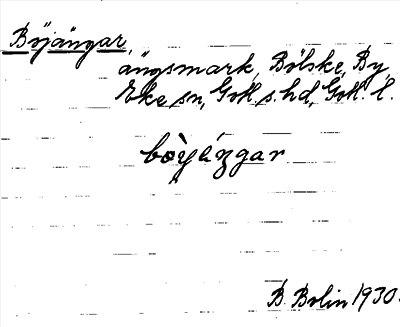 Böjängar,
ängsmark, Bölske, By,
Eke sn, Gotl. s. hd, Gotl. l.
bòyéngar
B. Bolin 1930.